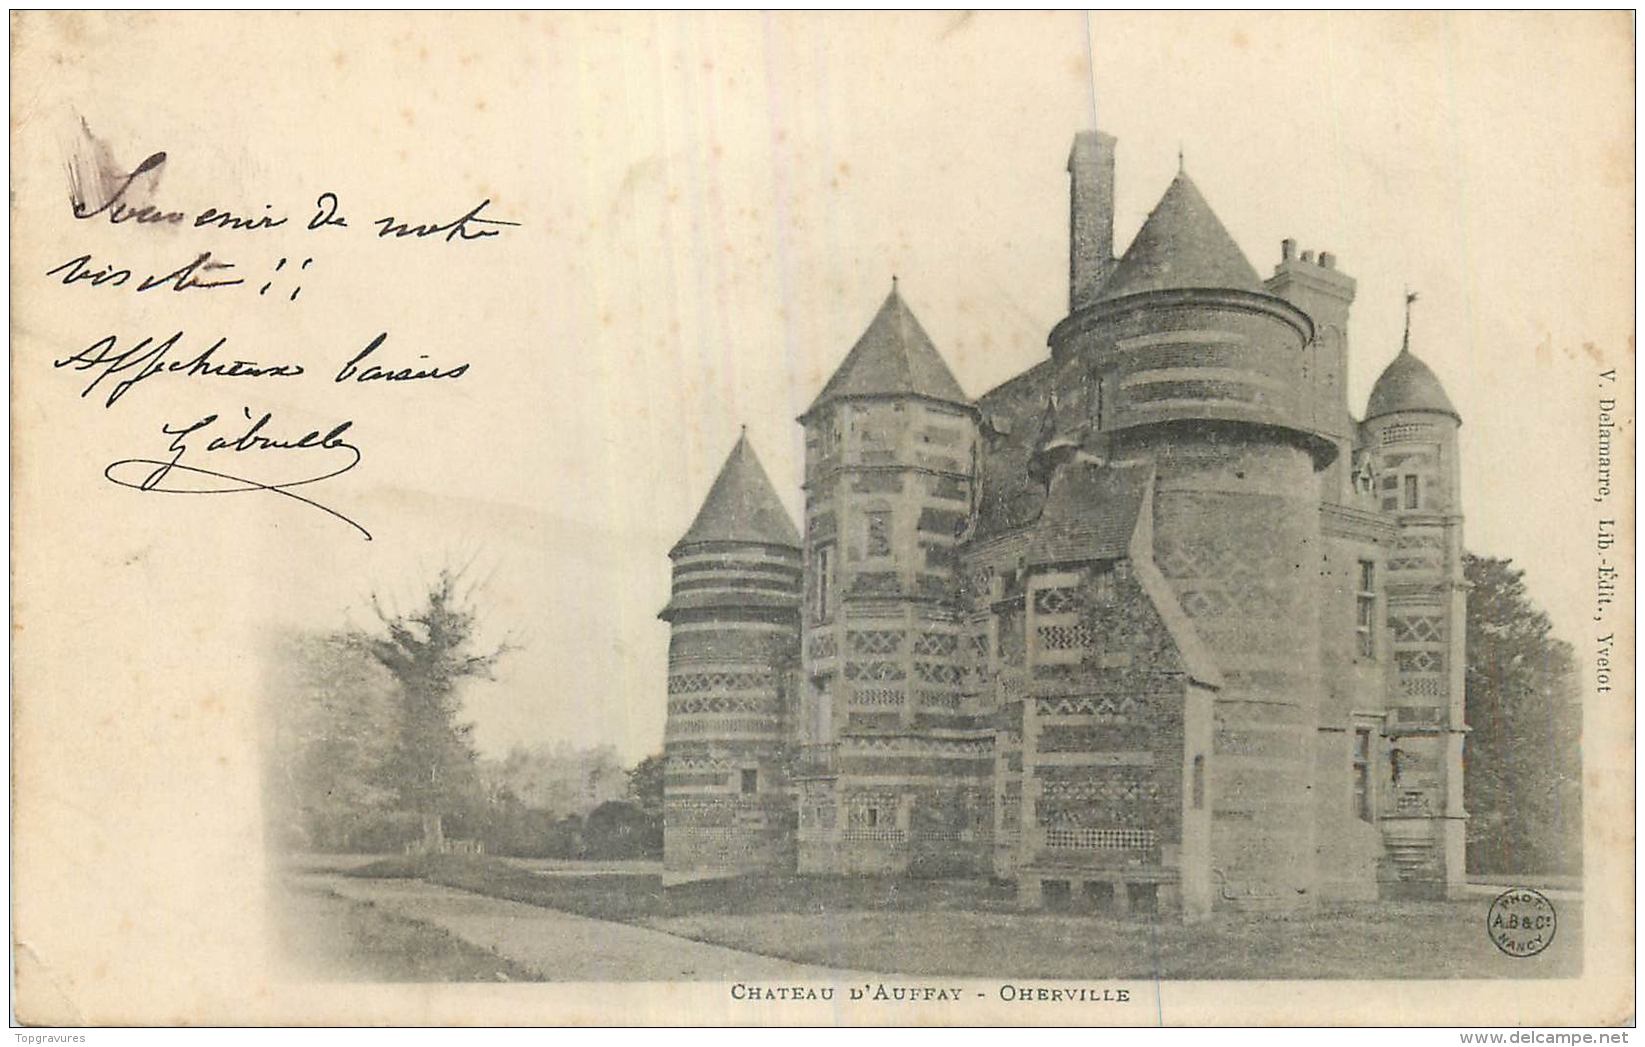 Souvenir de notre
visite !!
Affectueux baisers
Gabrielle
V. Delamarre, Lib.-Édit., Yvetot
PHOT.
A.B & Cie
NANCY
CHATEAU D'AUFFAY - OHERVILLE
Topgravures
www.delcampe.net